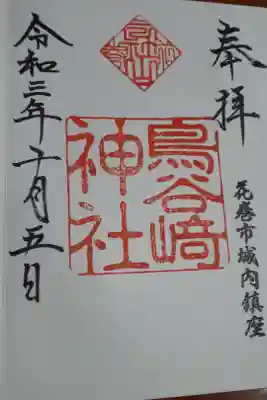 奉拝
花巻市城内鎮座
鳥谷﨑
神社
令和三年十月五日